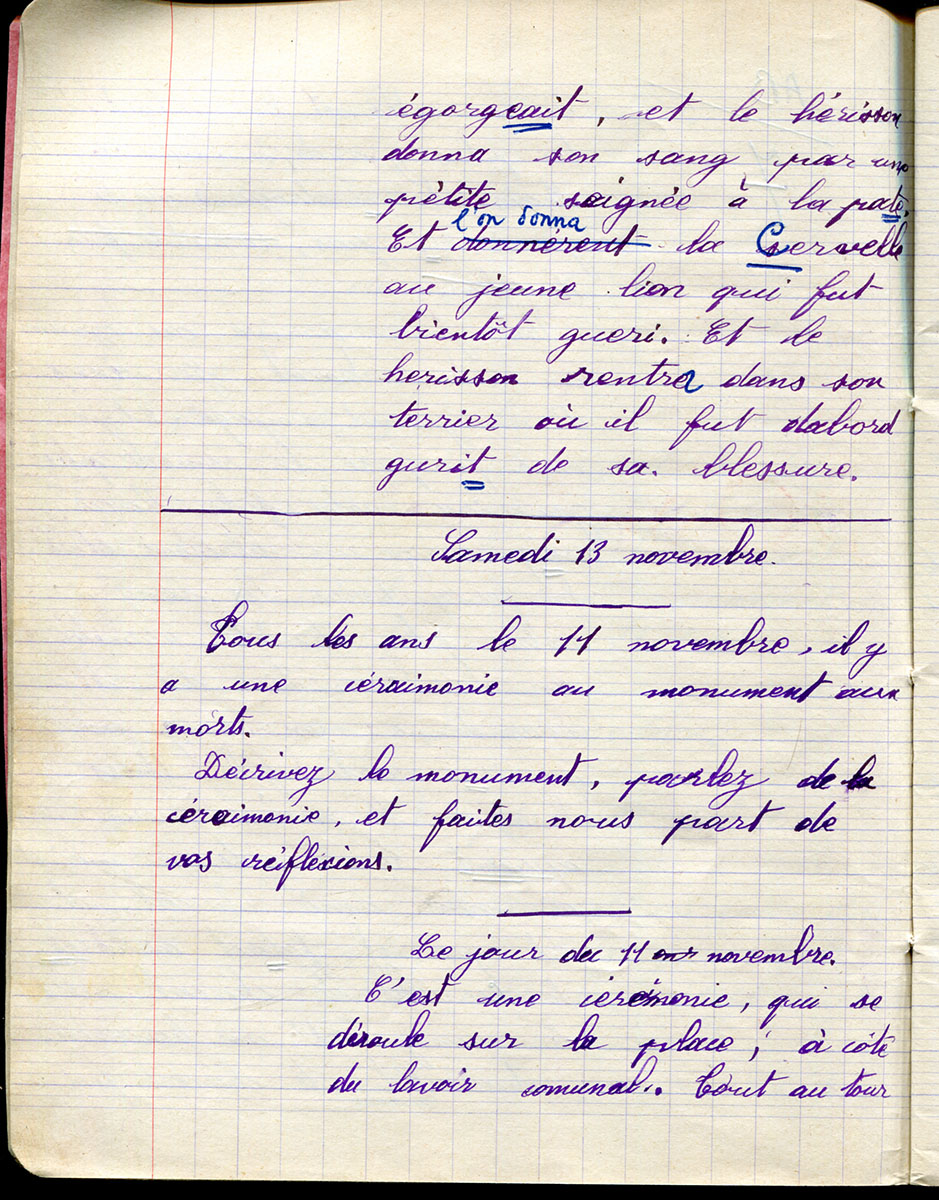 égorgeait, et le hérisson
donna son sang par une
pétite saignée à la pate.
l'on donna
Et donnèrent la Cervelle
au jeune lion qui fut
bientôt gueri. Et le
herisson rentra dans son
terrier où il fut dabord
gurit de sa blessure.
Samedi 13 novembre.
Tous les ans le 11 novembre, il y
a une céraimonie au monument aux
morts.
Décrivez le monument, parlez de la
céraimonie, et faites nous part de
vos réiflexions.
Le jour du 11 novembre.
C'est une cérémonie, qui se
déroule sur la place, à côté
du lavoir comunal. Tout au tour